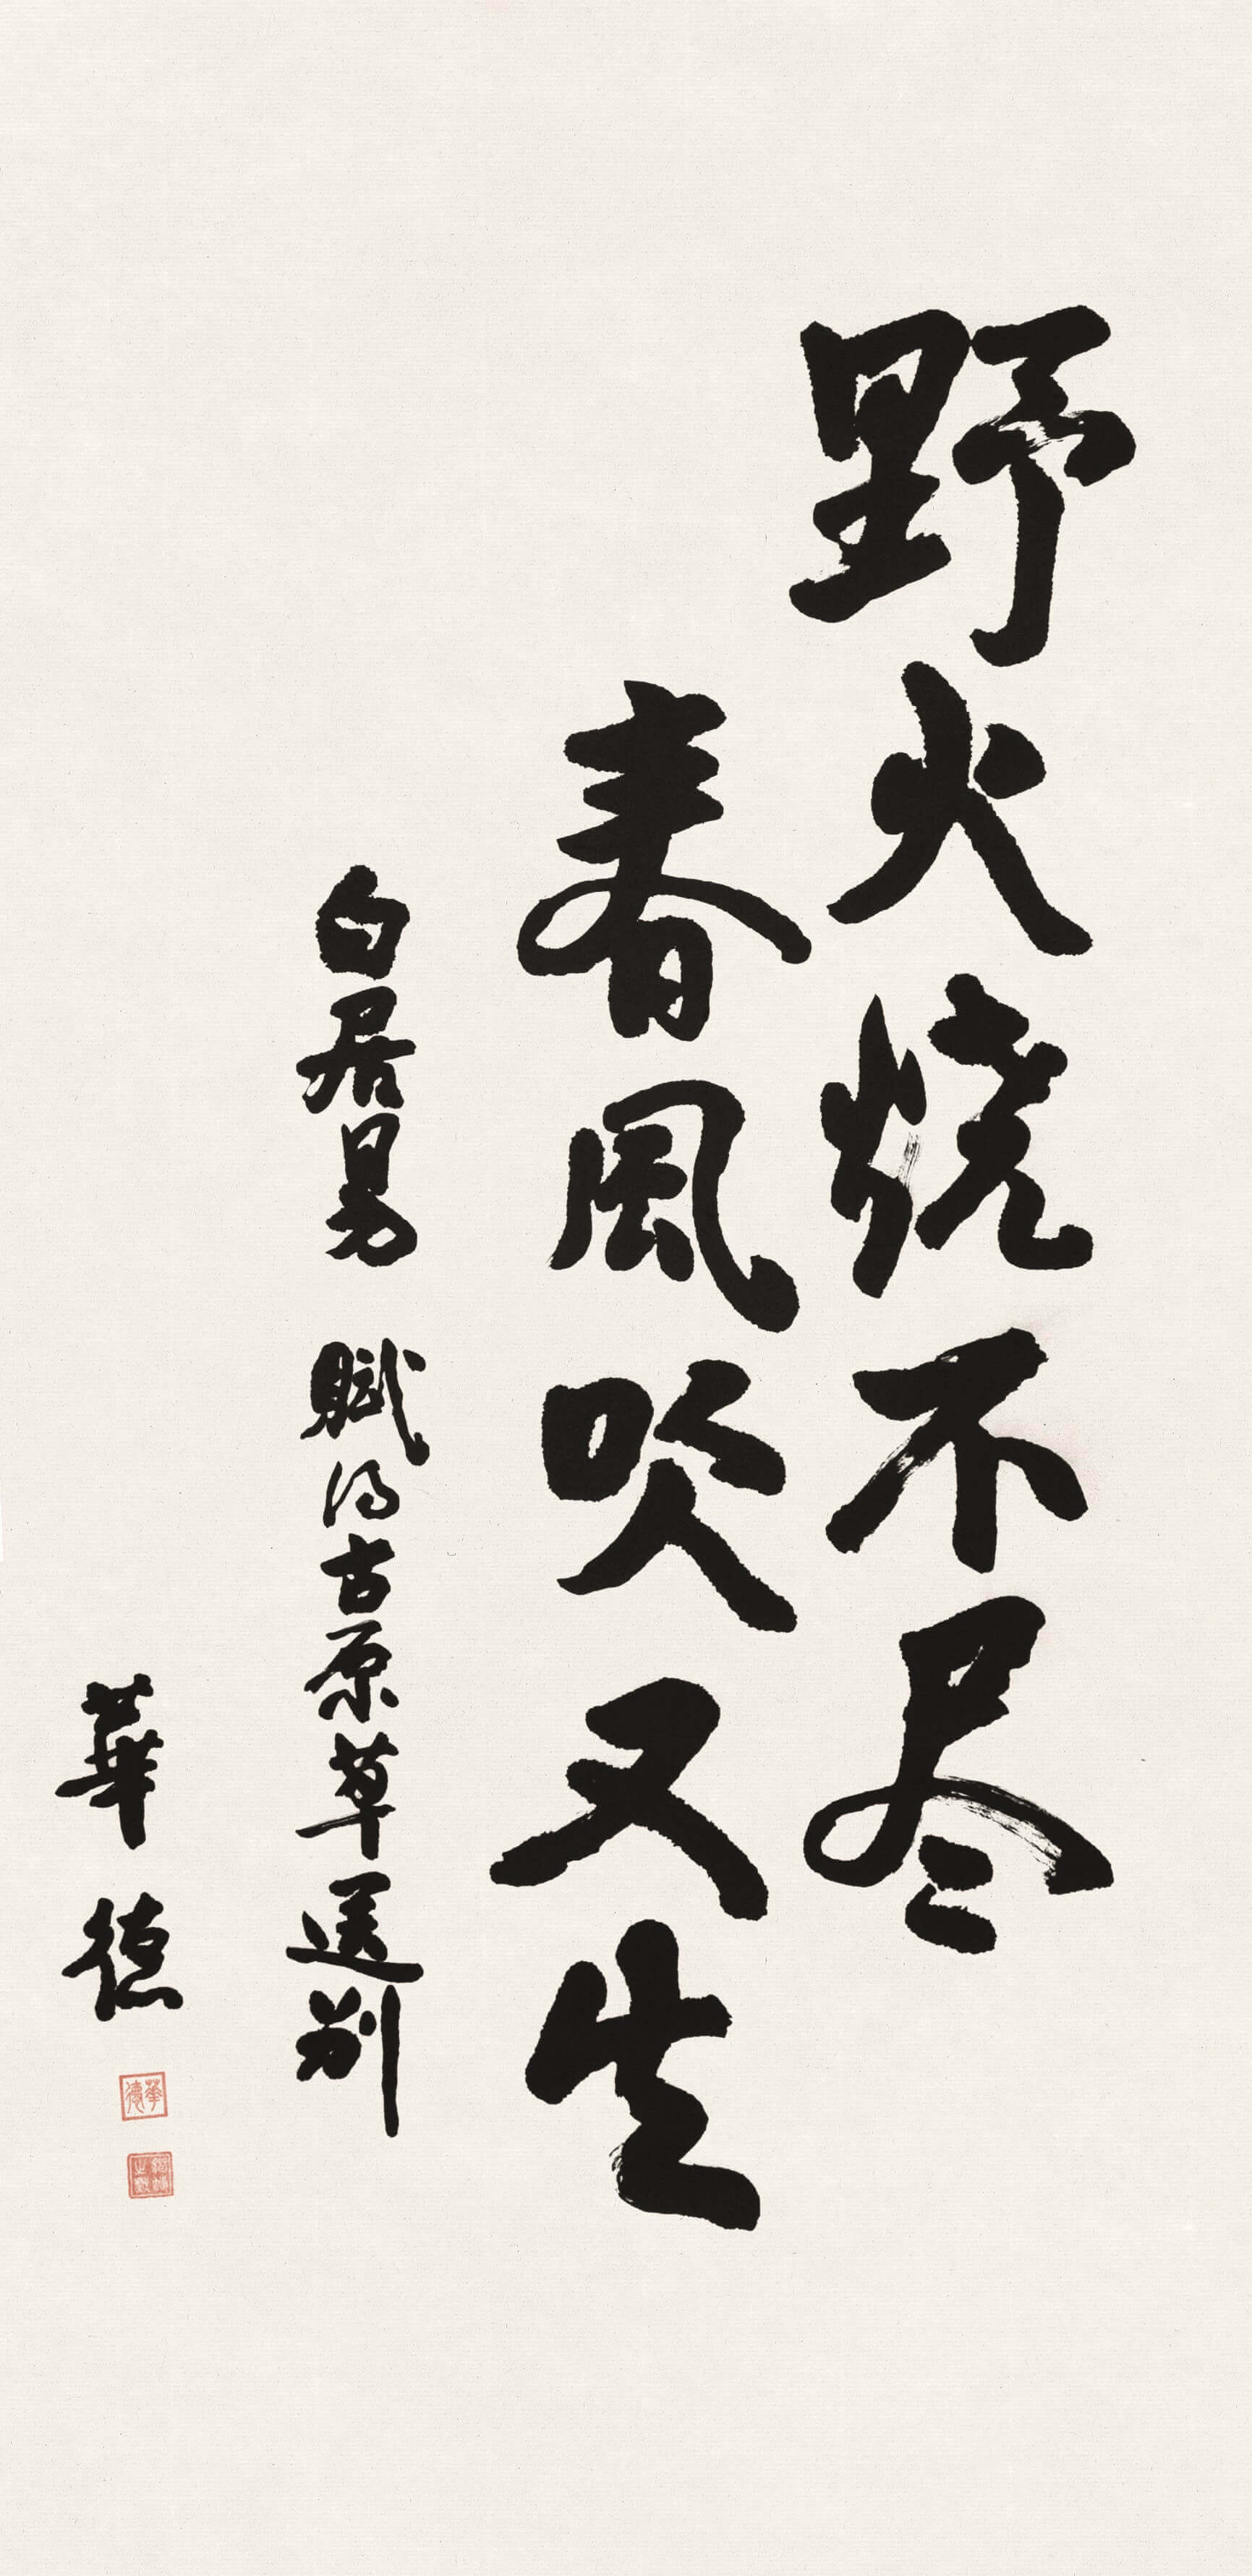 野火烧不尽
春風吹又生
白居易 賦得古原草送别
華德
華德